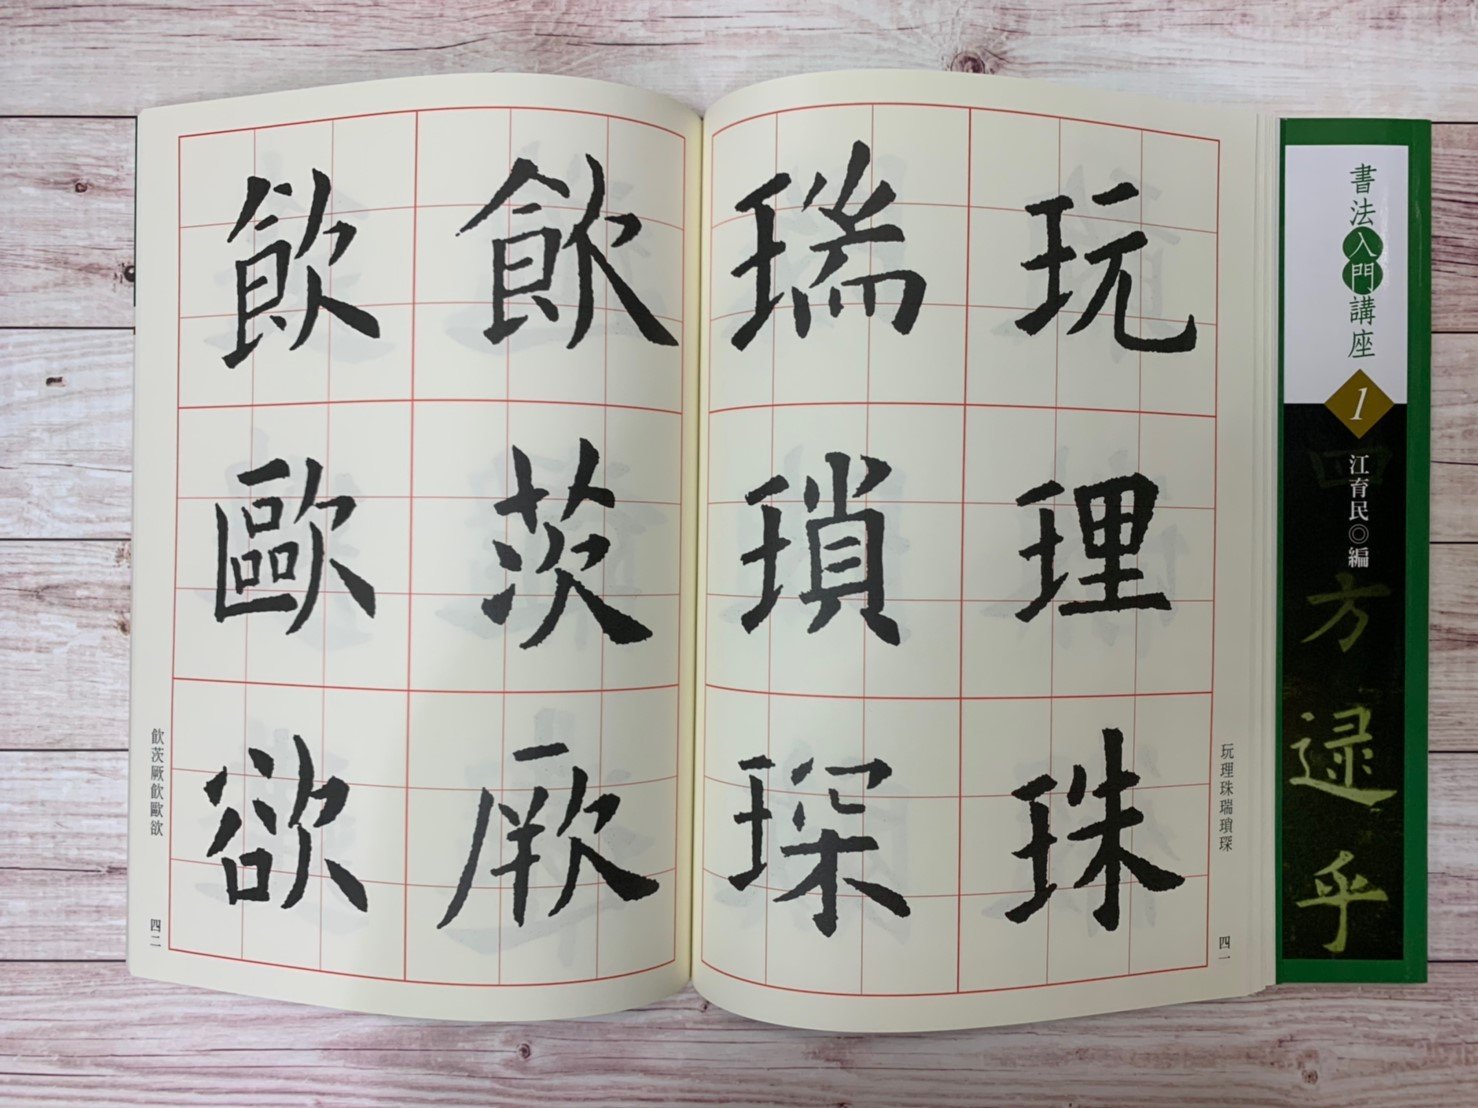 書法入門講座
1
江育民◎編
四方逮乎
玩理珠瑞瑣琛
四一
玩理珠
瑞瑣琛
飲茨厥
飲歐欲
飲茨厥飲歐欲
四二